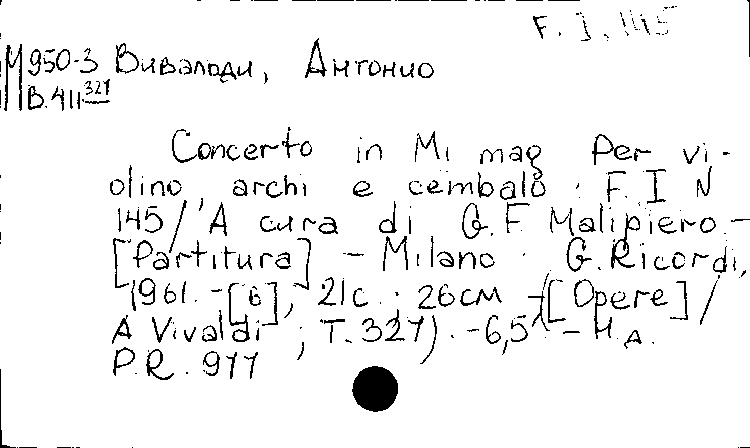 F. I, 145
М950-3 Вивальди, Антонио
В.411 327
Concerto in Mi mag Per vi-
olino, archi e cembalo. F. I N
145/ A cura di G. F. Malipiero.-
[Partitura] - Milano : G. Ricordi,
1961. -[6], 21c. ; 26см -([Opere]/
A Vivaldi ; T. 327). -6,5 - Н.А.
P.R. 977